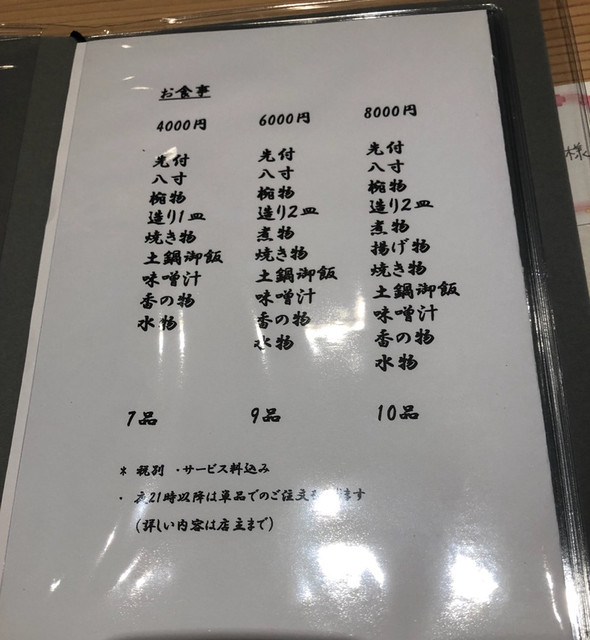 お食事
4000円 6000円 8000円
先付 先付 先付
八寸 八寸 八寸
椀物 椀物 椀物
造り1皿 造り2皿 造り2皿
焼き物 煮物 煮物
土鍋御飯 焼き物 揚げ物
味噌汁 土鍋御飯 焼き物
香の物 味噌汁 土鍋御飯
水物 香の物 味噌汁
水物 香の物
水物
7品 9品 10品
* 税別 ・サービス料込み
・ 夜21時以降は単品でのご注文
(詳しい内容は店主まで)
様